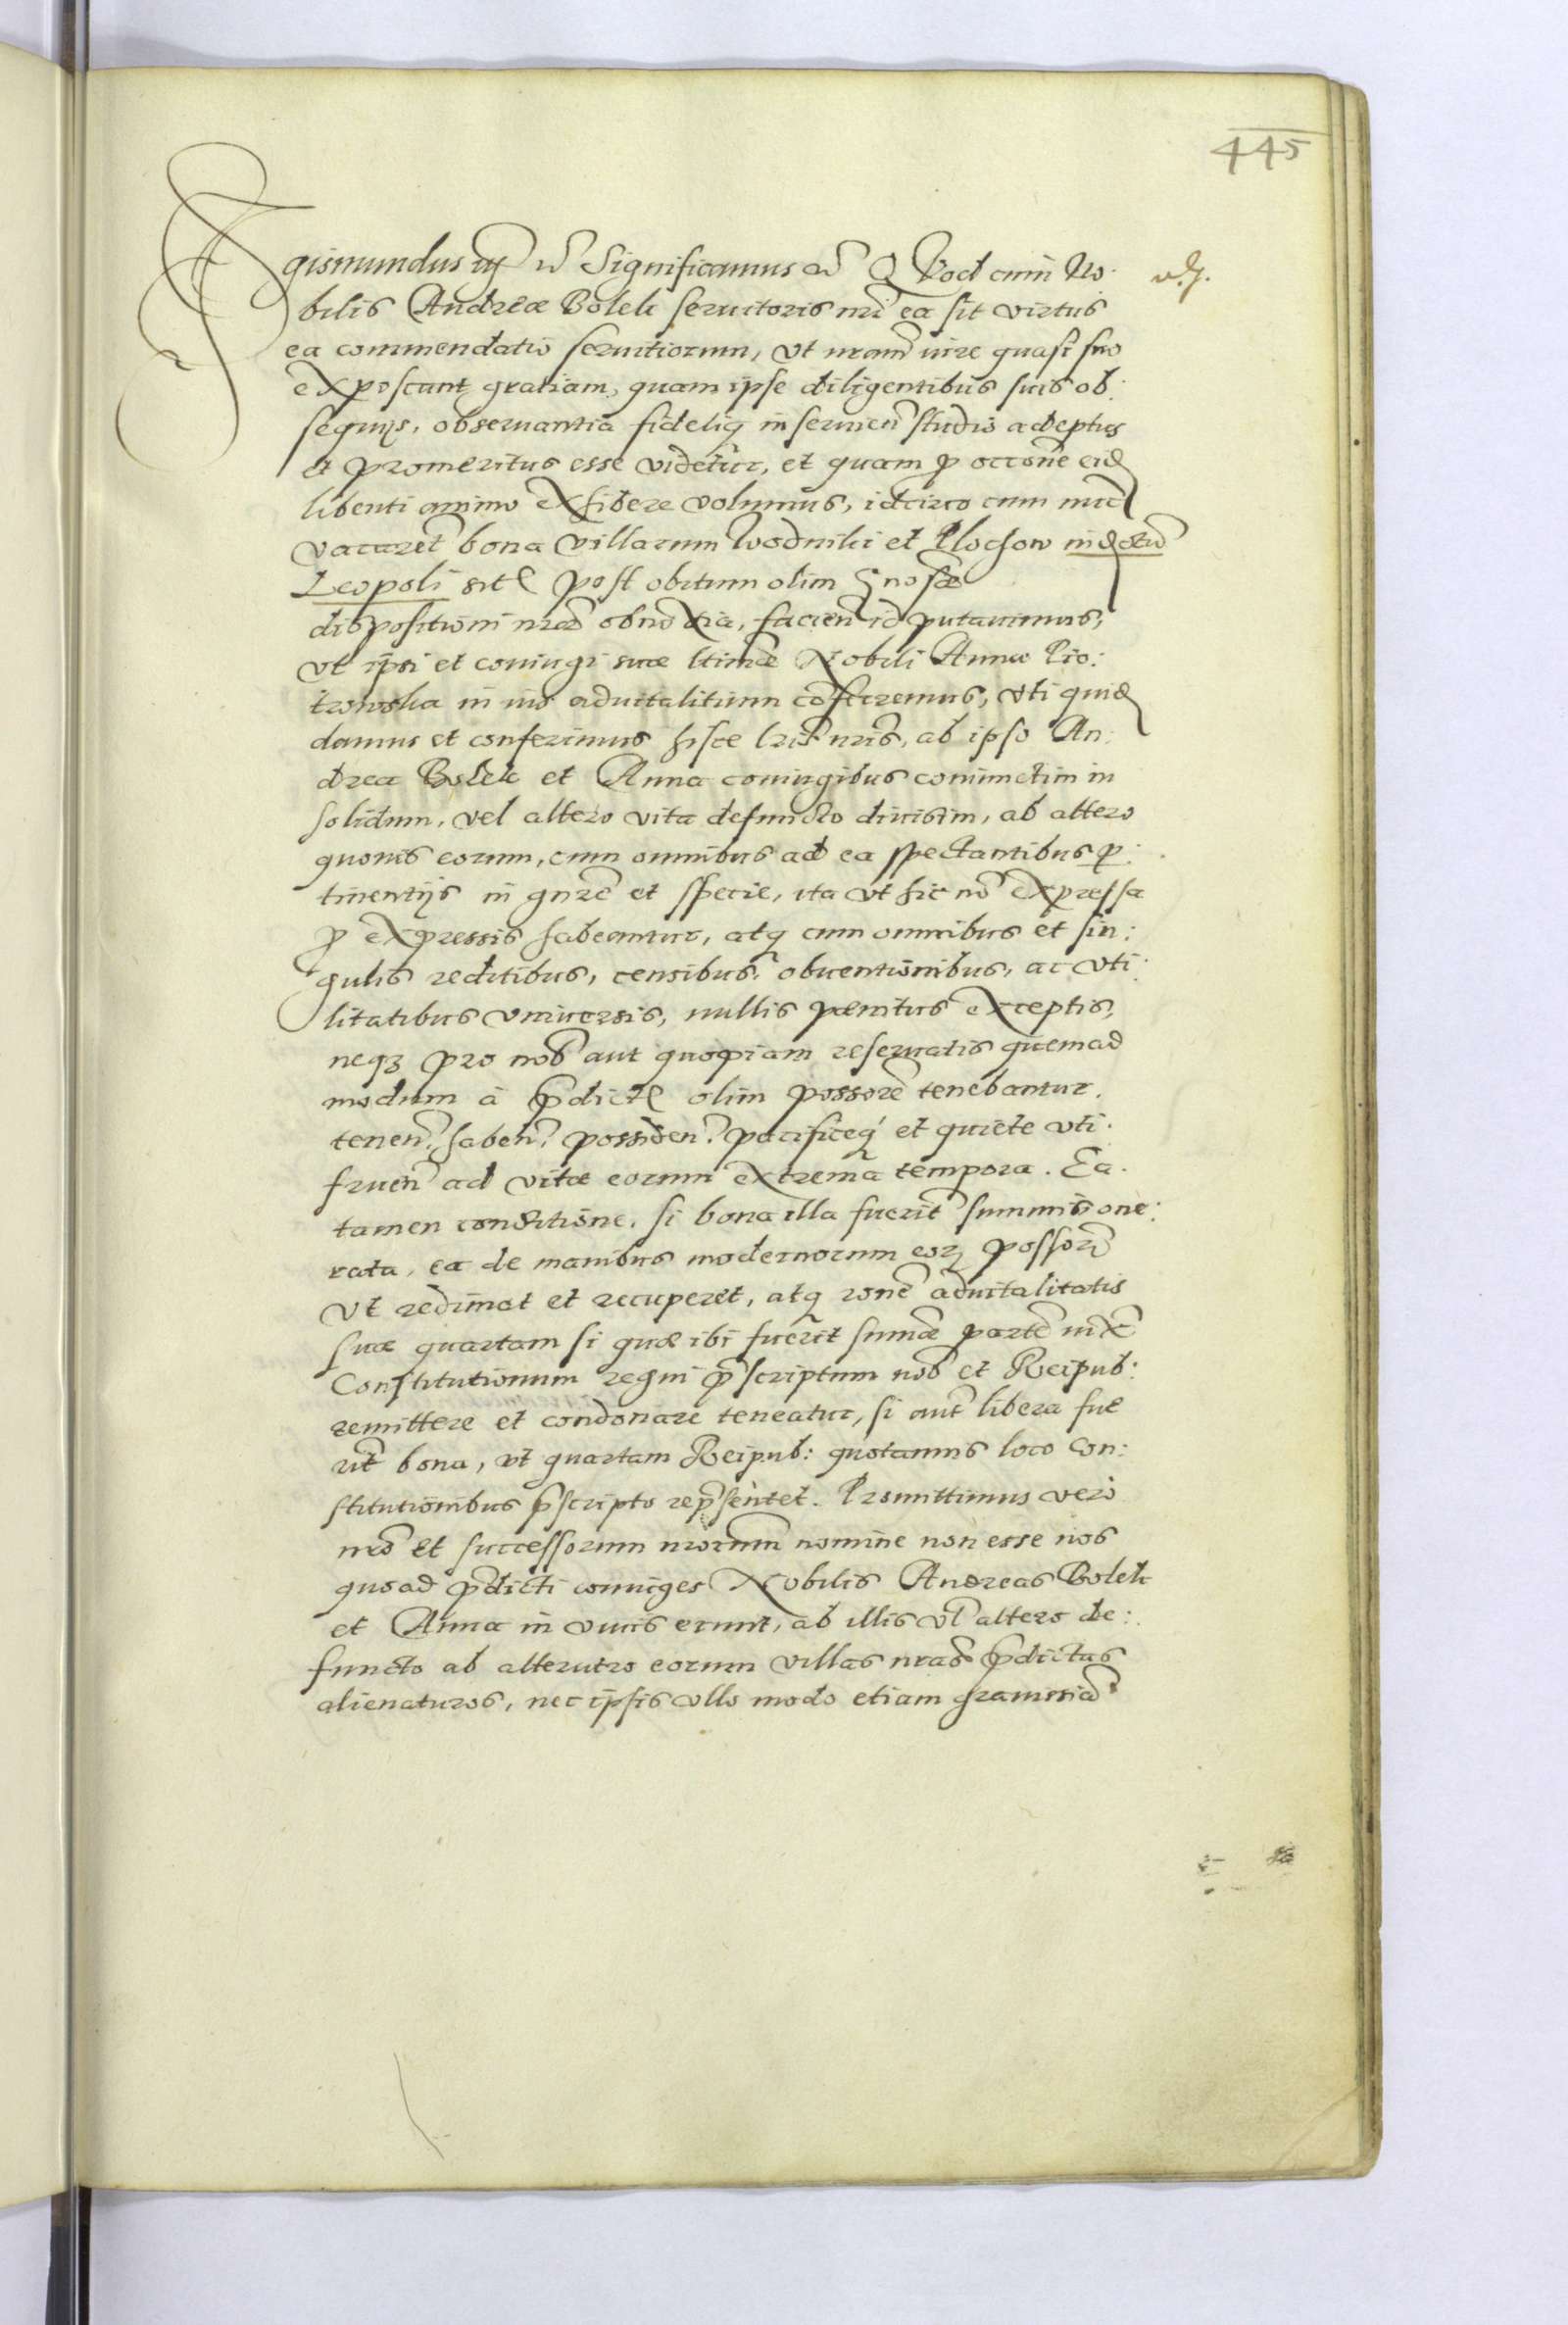 445
Sigismundus iij etc Significamus etc Quod cum No:
bilis Andreæ Bolek seruitoris nri ea sit virtus
ea commendatio seruitiorum, vt nram iure quasi suo
exposcant gratiam, quam ipse diligentibus suis ob:
sequijs, obseruantia fideliq inseruien studio adeptus
et promeritus esse videtur, et quam p occone eid
libenti animo exhibere volumus, idcirco cum nunc
vacaret bona villarum Wodniki et Plochow in distric
Leopoli sit post obitum olim Gnosæ
dispositioni nræ obnoxia, facien id putauimus,
vt ipsi et coniugi suæ ltimæ Nobili Annæ Pio:
trowska in ius aduitalitium coferremus, vti quid
damus et conferimus hisce lris nris, ab ipso An:
drea Bolek et Anna coniugibus coniunctim in
solidum, vel altero vita defuncto diuisim, ab altero
quouis eorum, cum omnibus ad ea spectantibus p:
tinentijs in gnre et specie, ita vt hic no expressa
p expressis habeantur, atq cum omnibus et sin:
gulis reditibus, censibus, obuentionibus, ac vti:
litatibus vniuersis, nullis pænitus exceptis,
neq pro nob aut quopiam reseruatis quemad
modum à pdict olim possore tenebantur.
tenen, haben, possiden, pacificeq et quiete vti:
fruen ad vitæ eorum extrema tempora. Ea
tamen conditione, si bona illa fuerit summis one:
rata, ea de manibus modernorum eorq possorū
vt redimat et recuperet, atq rone aduitalitatis
suæ quartam si quæ ibi fuerit sumæ parte iuxt
Constitutionum regni pscriptum nob et Reipub:
remittere et condonare teneatur, si aut libera fue
rit bona, vt quartam Reipub: quotannis loco Con:
stitutionibus pscripto repsentet. Promittimus vero
nro et successorum nrorum nomine non esse nos
quoad pdicti coniuges Nobilis Andreas Bolek
et Anna in viuis erunt, ab illis vl altero de:
functo ab alterutro eorum villas nras pdictas
alienaturos, nec ipsis vllo modo etiam grauissia